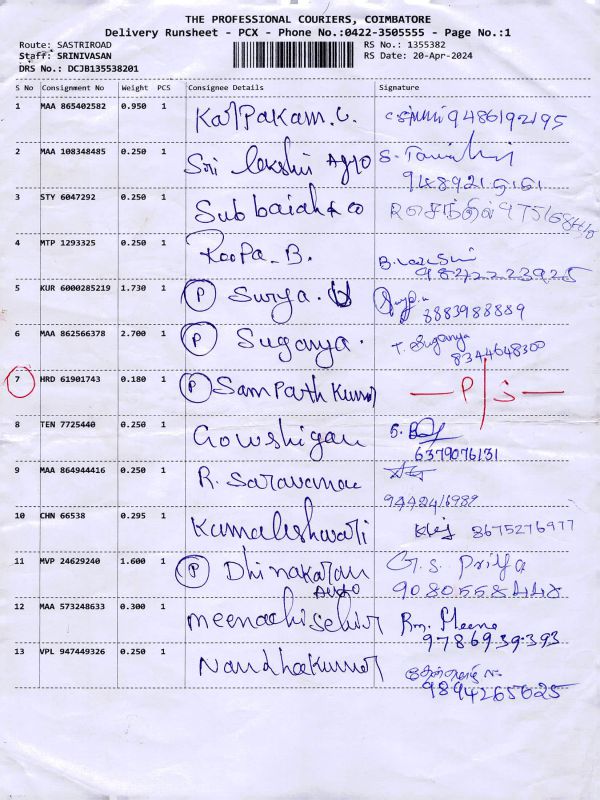 THE PROFESSIONAL COURIERS, COIMBATORE
Delivery Runsheet - PCX - Phone No.:0422-3505555 - Page No.:1
Route: SASTRIROAD RS No.: 1355382
Staff: SRINIVASAN RS Date: 20-Apr-2024
DRS No.: DCJB135538201
S No Consignment No Weight PCS Consignee Details Signature
1 MAA 865402582 0.950 1 Kalpakam. C. 9486192195
2 MAA 108348485 0.250 1 Sri lakshmi Agro S.
3 STY 6047292 0.250 1 Subbaiah & co R செந்தில்
4 MTP 1293325 0.250 1 Roopa. B. B.
9842223925
5 KUR 6000285219 1.730 1 P Surya.
8883988889
6 MAA 862566378 2.700 1 P Suganya. T. Suganya
8344648300
7 HRD 61901743 0.180 1 P Sampath Kumar P S
8 TEN 7725440 0.250 1 Gowshigan S.
6379076131
9 MAA 864944416 0.250 1 R. Saravanan
9442416989
10 CHN 66538 0.295 1 Kamaleshwari 8675276977
11 MVP 24629240 1.600 1 P Dhinakaran G. S. Priya
Auto 9080558448
12 MAA 573248633 0.300 1 meenachi selvir Rm. Meena
9786939393
13 VPL 947449326 0.250 1 Nandhakumar
9894265625